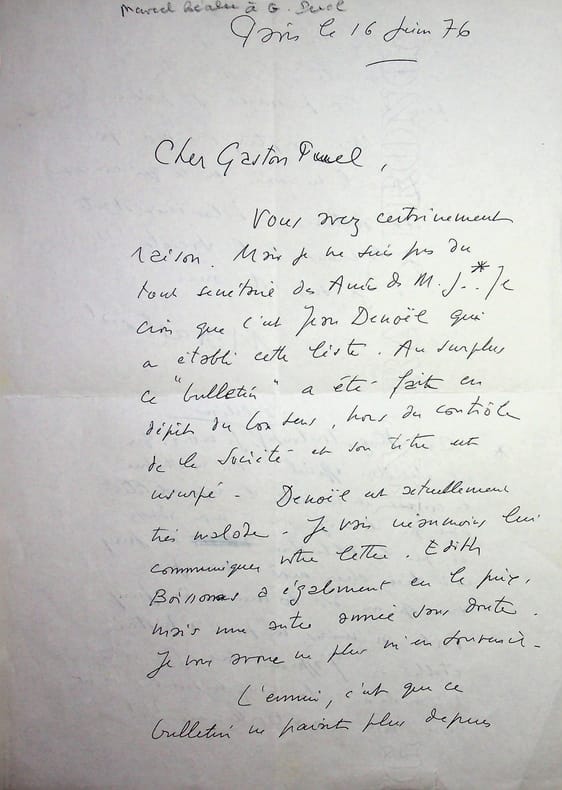 Marcel Béalu à G. Puel
Paris le 16 Juin 76
Cher Gaston Puel,
Vous avez certainement
raison. Mais je ne suis pas du
tout secrétaire des Amis de M. J.* Je
crois que c'est Jean Denoël qui
a établi cette liste. Au surplus
ce "bulletin" a été fait en
dépit du bon sens, hors du contrôle
de la Société et son titre est
usurpé - Denoël est actuellement
très malade - Je vais néanmoins lui
communiquer votre lettre. Edith
Boissonnas a également eu le prix,
mais une autre année sans doute.
Je vous avoue ne plus m'en souvenir -
L'ennui, c'est que ce
bulletin ne paraît plus depuis